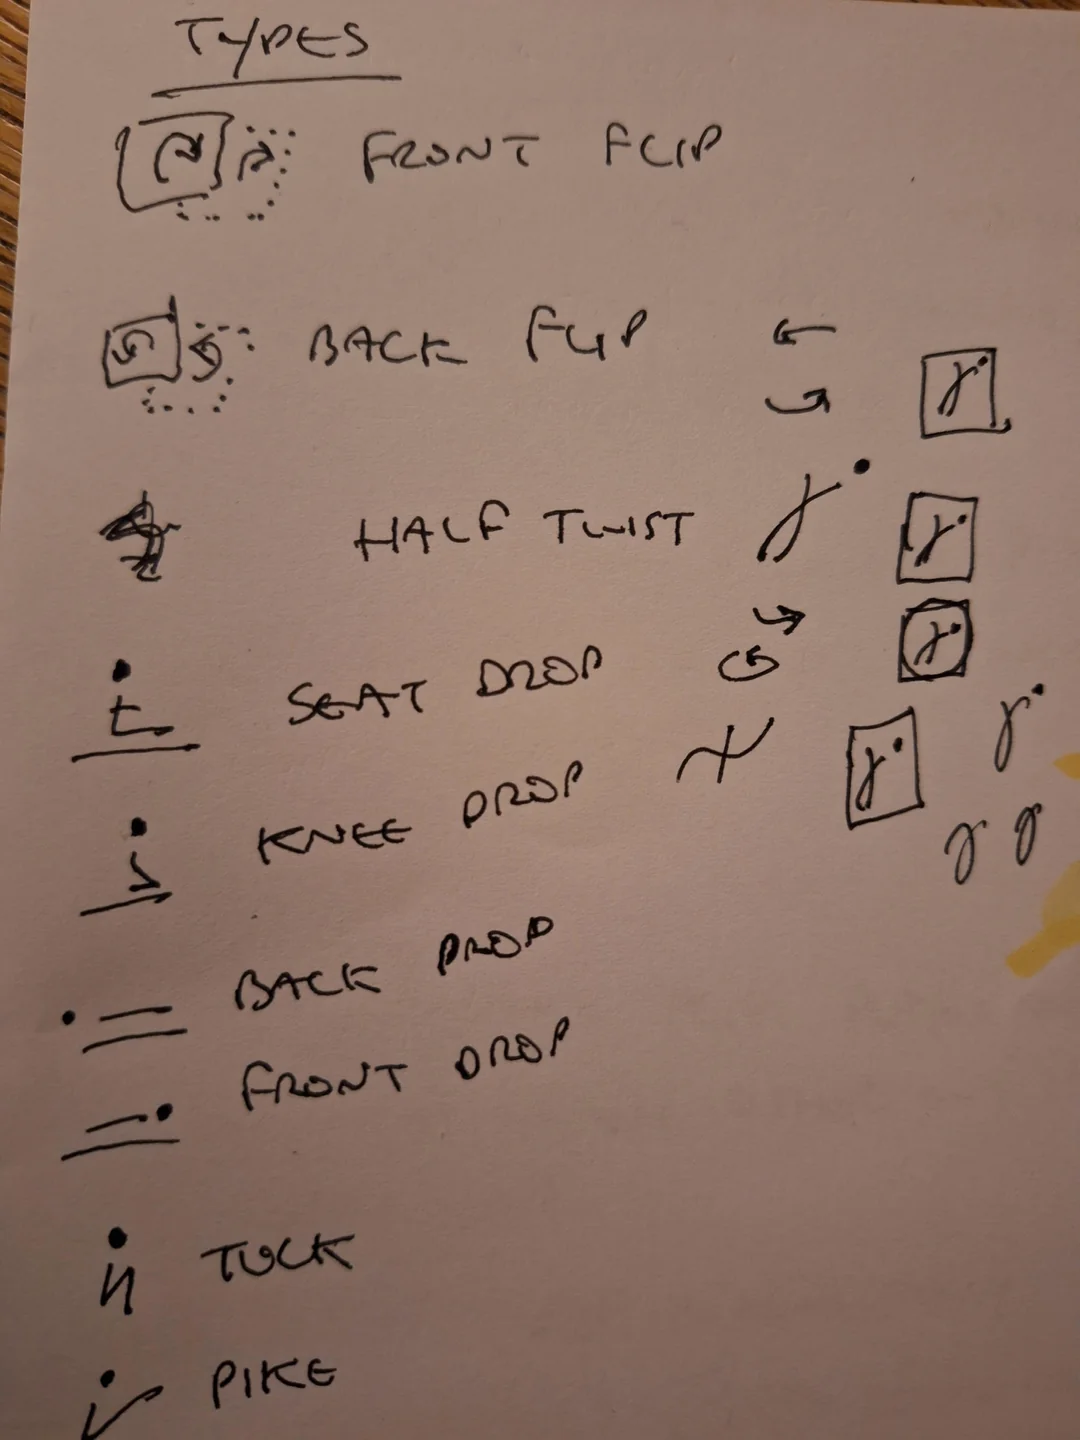 TYPES
FRONT FLIP
BACK FLIP
HALF TWIST
SEAT DROP
KNEE DROP
BACK DROP
FRONT DROP
TUCK
PIKE